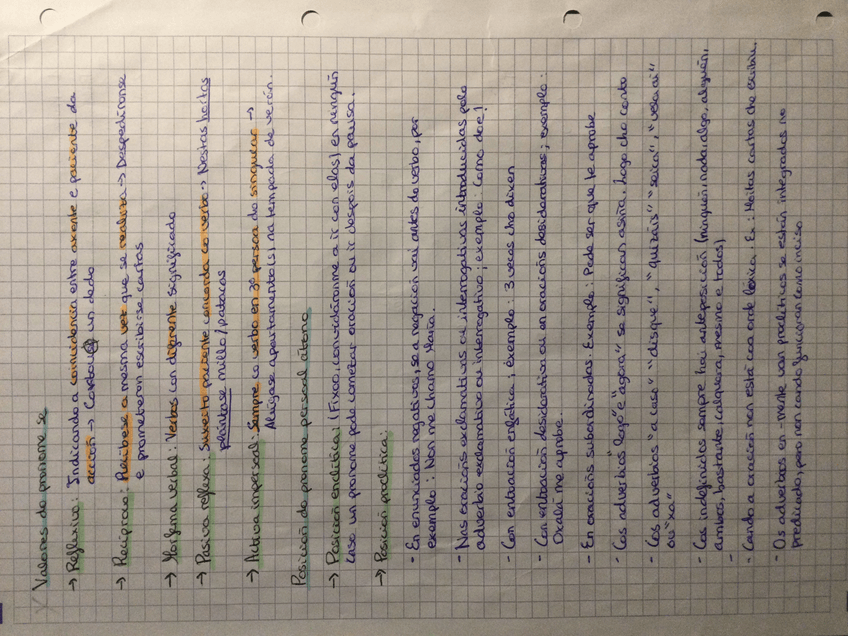 Valores do pronome se
→ Reflexivo: Indicando a coincidencia entre axente e paciente da
acción → Cortouse un dedo
→ Recíproco: Recíbese a mesma vez que se realiza → Despedíronse
e prometeron escribirse cartas
→ Morfema verbal: Verbos con diferente significado
→ Pasiva reflexa: Suxeito paciente concorda co verbo → Nestas hortas
plántase millo/patacas
→ Activa impersoal: Sempre co verbo en 3ª persoa do singular →
Alúgase apartamento(s) na tempada de verán.
Posición do pronome persoal átono
→ Posición enclítica: (Fíxoo, convidáronme a ir con elas) en ningún
caso un pronome pode comezar oración ou ir despois da pausa.
→ Posición proclítica:
- En enunciados negativos, se a negación vai antes do verbo, por
exemplo: Non me chamo María.
- Nas oracións exclamativas ou interrogativas introducidas polo
adverbio exclamativo ou interrogativo; exemplo: Como doe!
- Con entoación enfática, exemplo: 3 veces cho dixen
- Con entoación desiderativa ou en oracións desiderativas; exemplo:
Oxalá me aprobe.
- En oracións subordinadas. Exemplo: Pode ser que te aprobe
- Cos adverbios "logo" e "agora" se significan axiña. Logo cho conto
- Cos adverbios "a caso" "disque", "quizáis" "seica", "velaí"
ou "xa"
- Cos indefinidos sempre hai anteposición (ninguén, nada, algo, alguén,
ambos, bastante, calquera, mesmo e todos)
-
- Cando a oración non está coa orde lóxica. Ex: Moitas cartas che escribín.
- Os adverbios en -mente van proclíticos se están integrados no
predicado, pero non cando funcionan como inciso